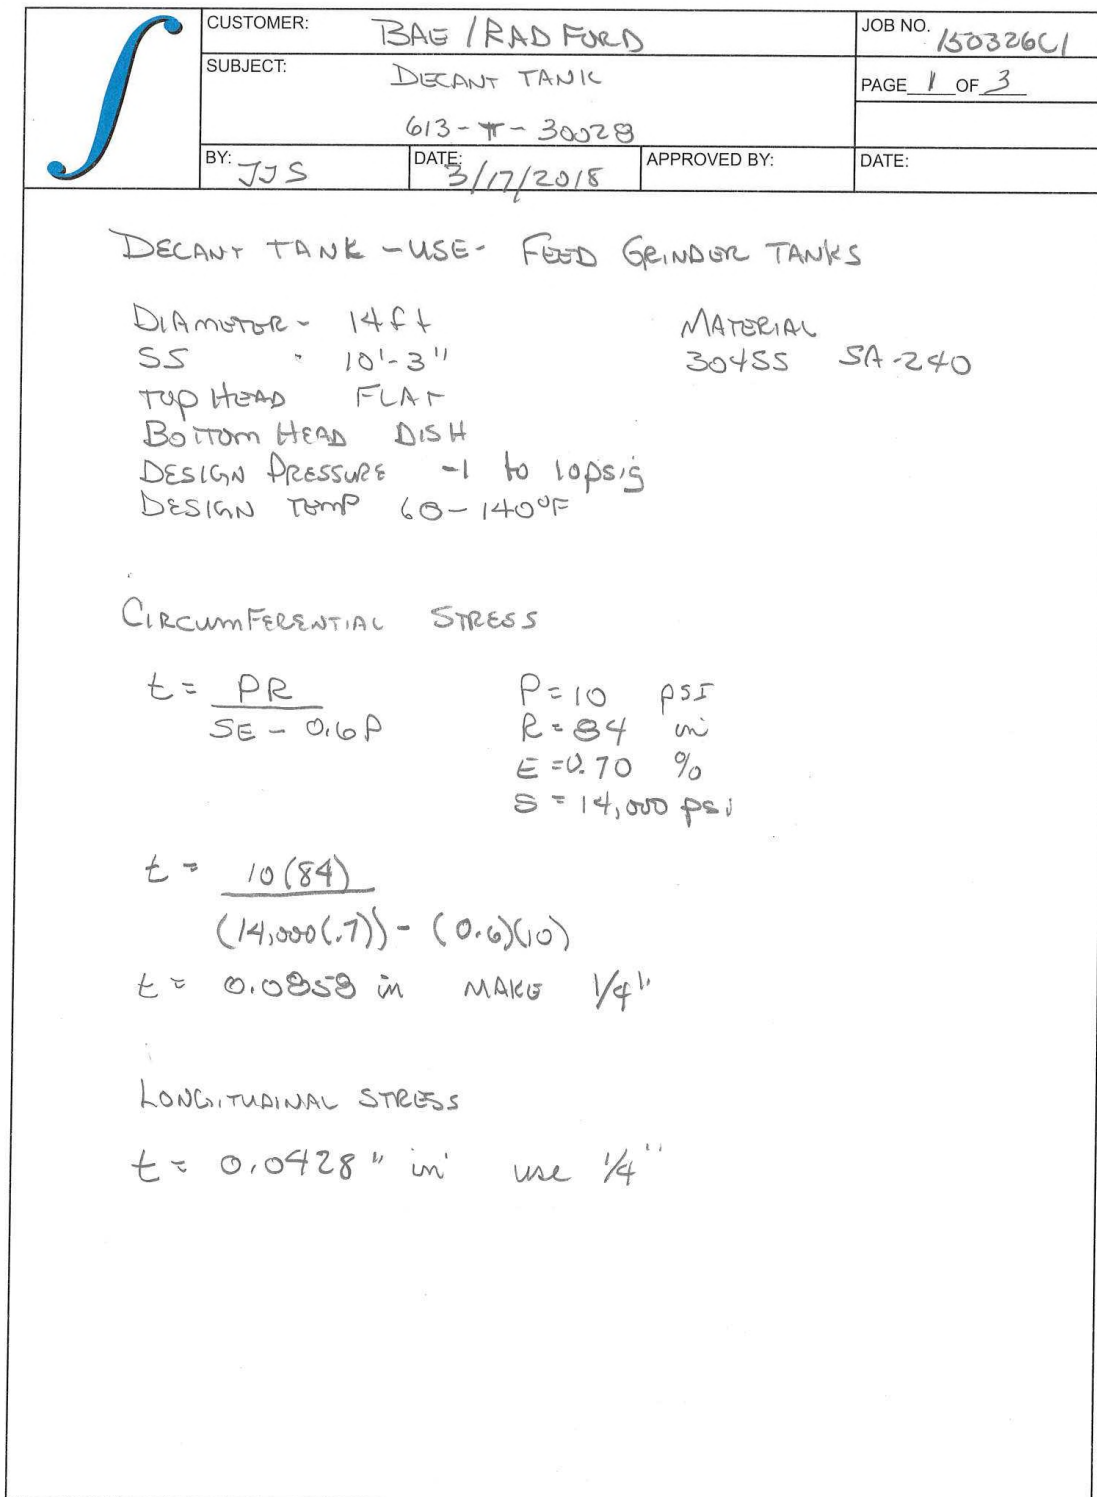 CUSTOMER: BAE / RADFORD
JOB NO. 150326C1
SUBJECT: DECANT TANK
PAGE 1 OF 3
613-T-30028
BY: JJS
DATE: 3/17/2018
APPROVED BY:
DATE:
DECANT TANK - USE - FEED GRINDER TANKS
DIAMETER - 14ft
MATERIAL
SS - 10'-3"
304SS SA-240
TOP HEAD FLAT
BOTTOM HEAD DISH
DESIGN PRESSURE -1 to 10psig
DESIGN TEMP 60-140°F
CIRCUMFERENTIAL STRESS
t = PR / SE - 0.6P
P = 10 psi
R = 84 in
E = 0.70 %
S = 14,000 psi
t = 10(84) / (14,000(.7)) - (0.6)(10)
t = 0.0858 in MAKE 1/4"
LONGITUDINAL STRESS
t = 0.0428" in use 1/4"